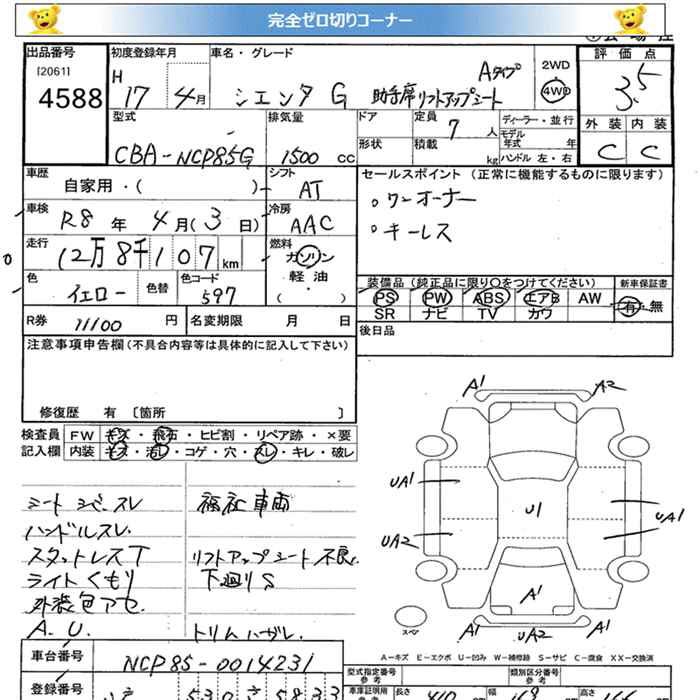 完全ゼロ切りコーナー
出品番号
(2061)
4588
初度登録年月
H 17 4月
車名・グレード
シエンタ G Aタイプ
助手席リフトアップシート
2WD
4WD
評価点
3.5
外装 内装
C C
型式
CBA-NCP85G
排気量
1500 cc
ドア
形状
定員 7 人
積載 kg
ディーラー・並行
モデル年式 年
ハンドル 左・右
車歴
自家用・( )
シフト
AT
セールスポイント（正常に機能するものに限ります）
。ワンオーナー
。キーレス
車検
R8 年 4 月(3 日)
冷房
AAC
走行
12万8千107 km
燃料
ガソリン
軽油
( ・ )
色
イエロー
色替
色コード
597
装備品（純正品に限り〇をつけてください）
PS PW ABS エアB AW
SR ナビ TV カワ
新車保証書
有・無
R券 11100 円
名変期限 月 日
後日品
注意事項申告欄（不具合内容等は具体的に記入して下さい）
修復歴 有〔箇所 〕
検査員 FW キズ・飛石・ヒビ割・リペア跡・×要
記入欄 内装 キズ・汚レ・コゲ・穴・スレ・キレ・破レ
シート シミ、スレ
ハンドルスレ
スタットレスT
ライトくもり
外装色アセ.
A.U.
福祉車両
リフトアップシート不良
下廻りS
トリムハガレ.
A1 A2
UA1
U1
UA1
UA2
A1
A1 UA2 A1
スペア
A-キズ E-エクボ U-凹み W-補修跡 S-サビ C-腐食 XX-交換済
車台番号
NCP85-0014231
登録番号
530 さ 5833
型式指定番号
参考
類別区分番号
参考
車庫証明用
参考
長さ 410
幅 169